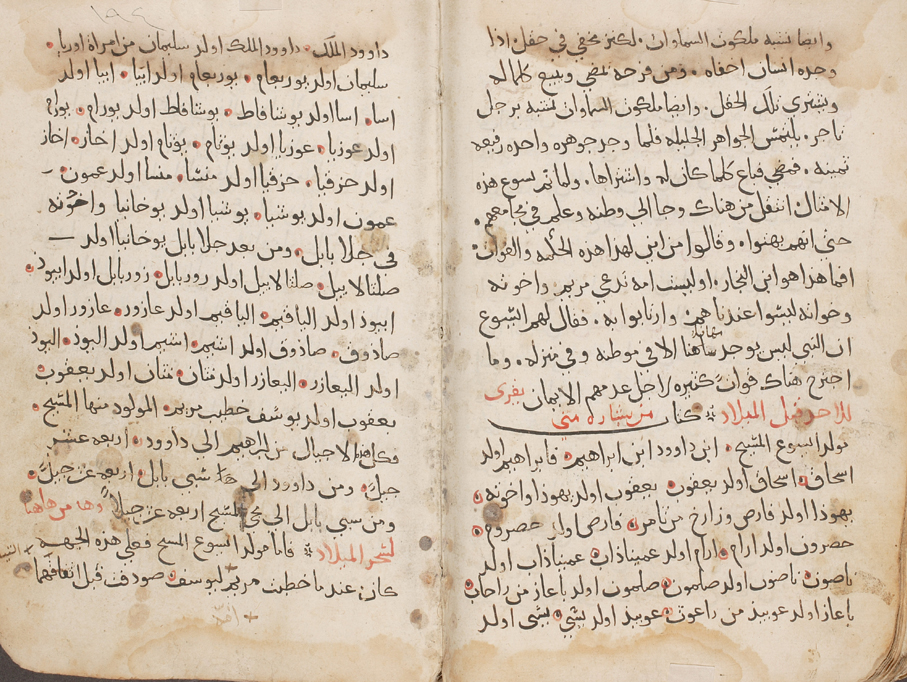 وايضا تشبه ملكوت السماوات لكنز مخفي في حقل اذا
وجده انسان اخفاه ومن فرحه يمضي ويبيع كلما له
ويشتري تلك الحقل وايضا ملكوت السماوات تشبه برجل
تاجر يلتمس الجواهر الجليله فلما وجد جوهره واحده رفيعه
ثمينه فمضى فباع كلما كان له واشتراها ولما تم يسوع هذه
الامثال انتقل من هناك وجا الى وطنه وعلم في مجامعهم
حتى انهم بهتوا وقالوا من اين لهذا هذه الحكمه والقوات
افما هذا هو ابن النجار اوليست امه تدعى مريم واخوته
وخواته ليسوا عندنا هم وارتابوا به فقال لهم اليسوع
ان النبي ليس يوجد مهانا الا في موطنه وفي منزله وما
اجترح هناك قوات كثيره لاجل عدمهم الايمان يقرى
للاحد قبل الميلاد كتاب من بشاره متى
تولد ايسوع المسيح ابن داوود ابن ابراهيم فابراهيم اولد
اسحاق اسحاق اولد يعقوب يعقوب اولد يهوذا واخوته
يهوذا اولد فارص وزارخ من تامر فارص اولد حصرون
حصرون اولد ارام ارام اولد عميناذاب عميناذاب اولد
ناصون ناصون اولد صلمون صلمون اولد باعاز من راحاب
باعاز اولد عوبيذ من راعوت عوبيذ اولد يسي يسى اولد
١٩٤
داوود الملك داوود الملك اولد سليمان من امراة اوريا
سليمان اولد بوربعام بوربعام اولد ابيا ابيا اولد
اسا اسا اولد يوشافاط يوشافاط اولد يورام يورام
اولد عوزيا عوزيا اولد يوثام يوثام اولد اخاز اخاز
اولد حزقيا حزقيا اولد منشا منشا اولد عمون
عمون اولد يوشيا يوشيا اولد يوخانيا واخوته
في جلا بابل ومن بعد جلا بابل يوخانيا اولد
صلتالاييل صلتالاييل اولد زوربابل زوربابل اولد ابيوذ
ابيوذ اولد الياقيم الياقيم اولد عازور عازور اولد
صادوق صادوق اولد اشيم اشيم اولد اليوذ اليوذ
اولد اليعازر اليعازر اولد متثان متثان اولد يعقوب
يعقوب اولد يوسف خطيب مريم المولود منها المسيح
فكل الاجيال من ابراهيم الى داوود اربعه عشر
جيل ومن داوود الى سبي بابل اربعه عشر جيل
ومن سبي بابل الى مجي المسيح اربعه عشر جيلا وها من هاهنا
لسحر الميلاد فاما مولد ايسوع المسيح فعلى هذه الجهه
كان عند ما خطبت مريم ليوسف صودفت قبل اتفاقهما